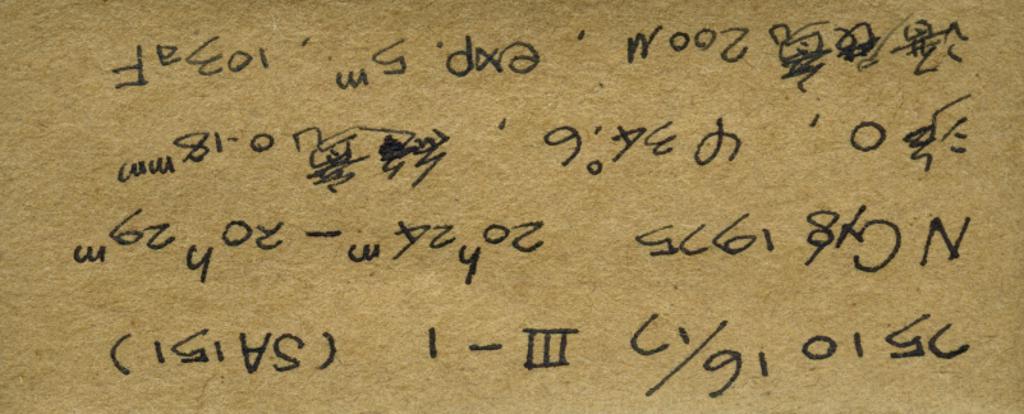 75 10 16/17 III - 1 (SA151)
N Cyg 1975 20h24m - 20h29m
0, φ 34.°6, 0.18mm
200μ, exp. 5m, 103aF